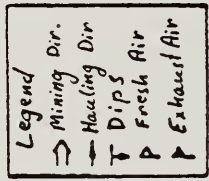 Legend
Mining Dir.
Hauling Dir
Dips
Fresh Air
Exhaust Air